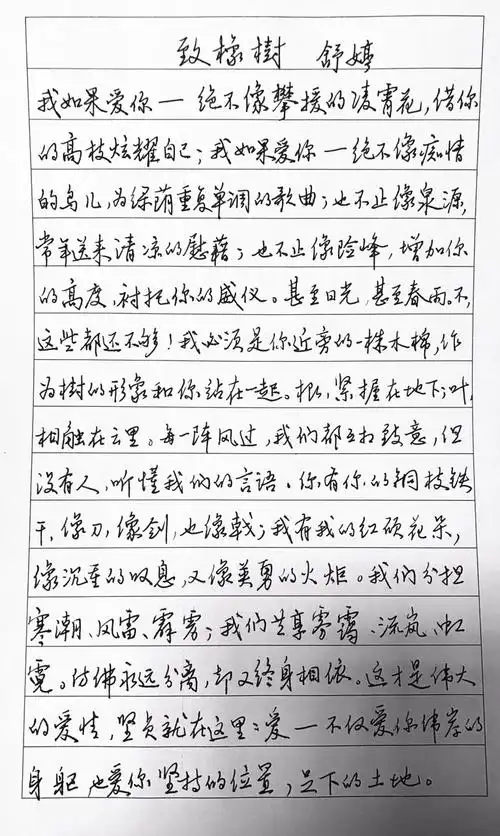 致橡樹 舒婷
我如果爱你一绝不像攀援的凌霄花,借你
的高枝炫耀自己;我如果爱你一绝不像痴情
的鸟儿,为绿荫重复单调的歌曲;也不止像泉源,
常年送来清凉的慰藉;也不止像险峰,增加你
的高度,衬托你的威仪。甚至日光,甚至春雨。不,
这些都还不够!我必须是你近旁的一株木棉,作
为樹的形象和你站在一起。根,紧握在地下;叶,
相融在云里。每一阵风过,我们都互打致意,但
没有人,听懂我们的言语。你有你的铜枝铁
干,像刀,像剑,也像戟;我有我的红硕花朵,
像沉重的叹息,又像英勇的火炬。我们分担
寒潮、风雷、霹雳;我们共享雾霭、流岚、虹
霓。仿佛永远分离,却又终身相依。这才是伟大
的爱情,坚贞就在这里:爱一不仅爱你伟岸的
身躯,也爱你坚持的位置,足下的土地。